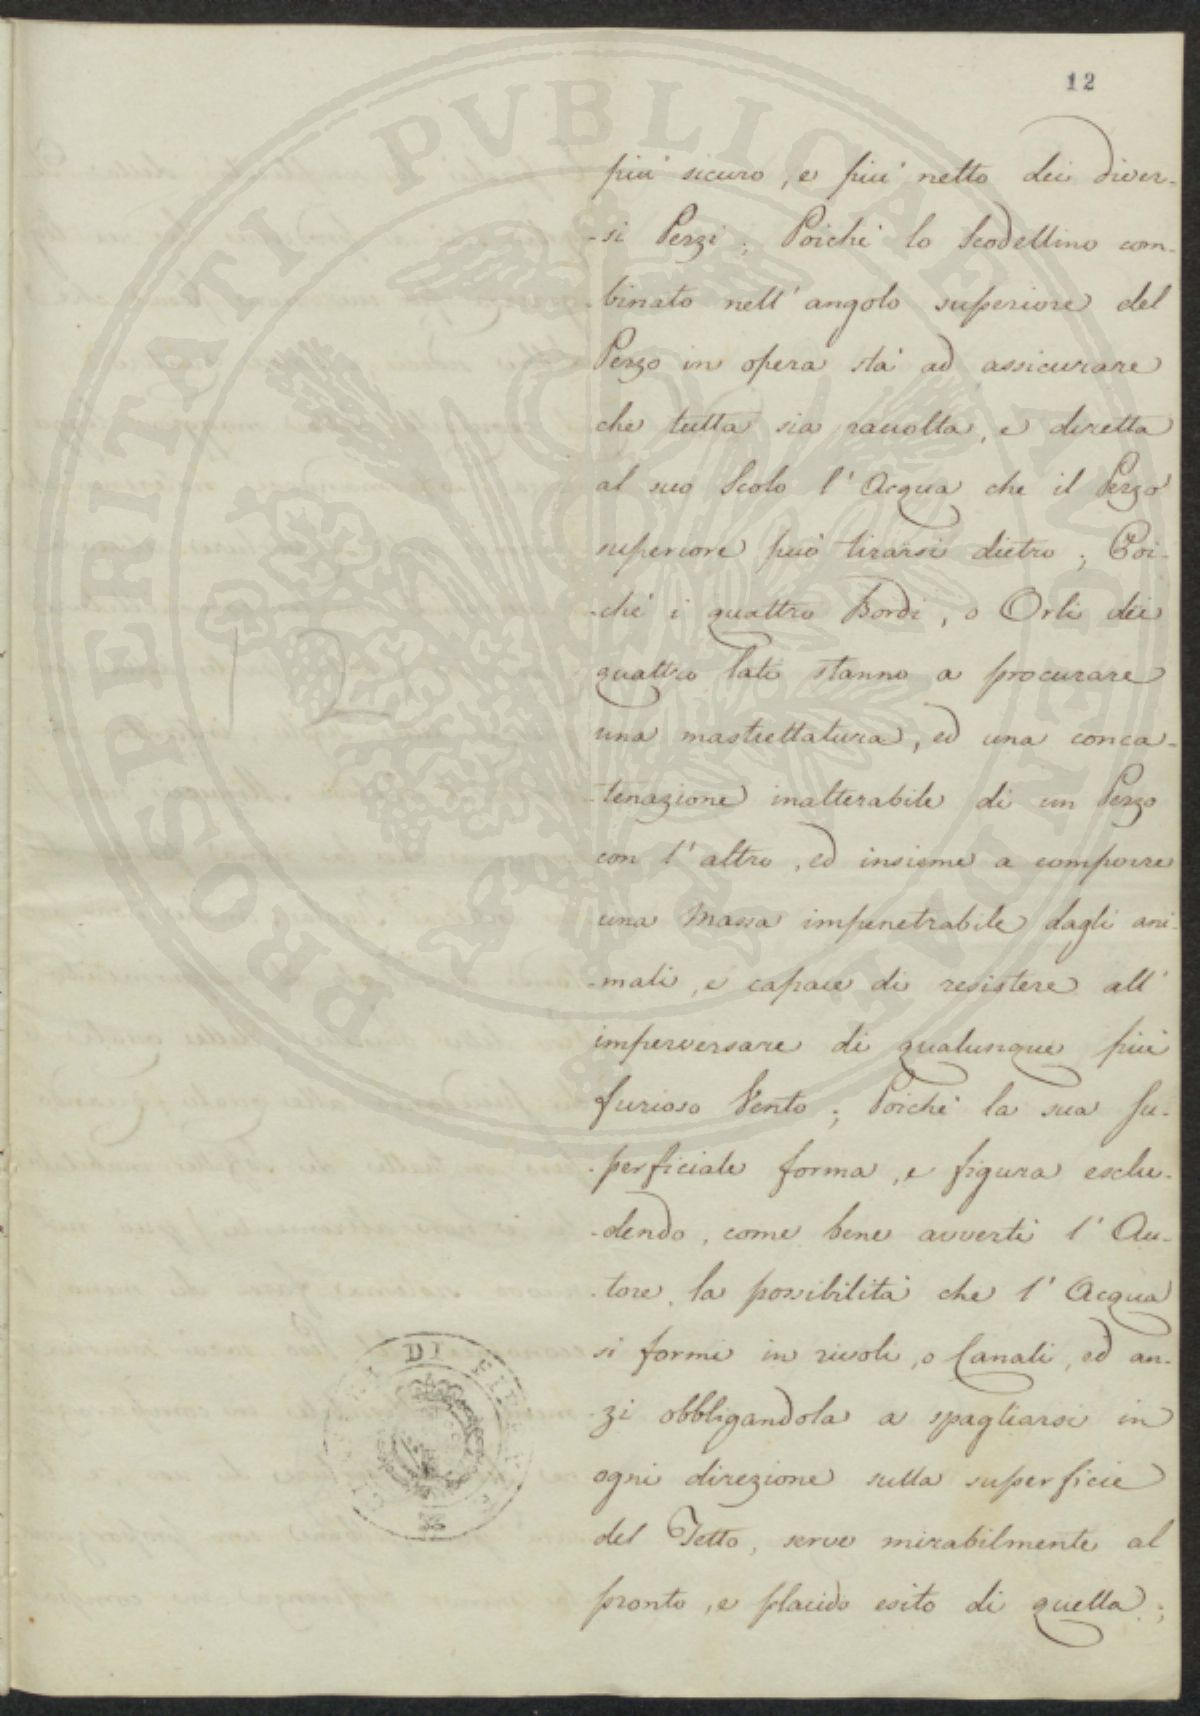 12
più sicuro, e più netto dei diver-
-si Pezzi; Poichè lo Scodellino com-
-binato nell' angolo superiore del
Pezzo in opera stà ad assicurare
che tutta sia raccolta, e diretta
al suo Scolo l' Acqua che il Pezzo
superiore può tirarsi dietro; Poi-
-chè i quattro Bordi, o Orli dei
quattro lati stanno a procurare
una mastiettatura, ed una conca-
-tenazione inalterabile di un Pezzo
con l' altro, ed insieme a comporre
una Massa impenetrabile dagli ani-
-mali, e capace di resistere all'
imperversare di qualunque più
furioso Vento; Poichè la sua Su-
-perficiale forma, e figura esclu-
-dendo, come bene avvertì l' Au-
-tore, la possibilità che l' Acqua
si formi in rivoli, o Canali, ed an-
-zi obbligandola a spagliarsi in
ogni direzione sulla superficie
del Tetto, serve mirabilmente al
pronto, e placido esito di quella;
12
PROSPERITATI PVBLICAE AVGENDAE
DI